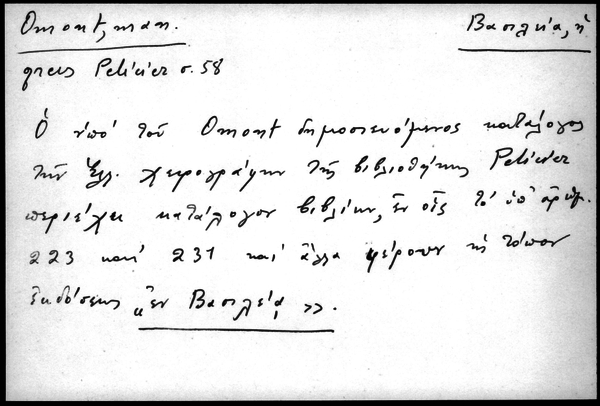 Omont, man. Βασιλεία, ἡ
grecs Pelicier σ. 58
Ὁ ὑπό τοῦ Omont δημοσιευόμενος κατάλογος
τῶν Ἑλλ. χειρογράφων τῆς βιβλιοθήκης Pelicier
περιέχει κατάλογον βιβλίων, ἐν οἷς τό ὑπ' ἀριθμ.
223 καί 231 καί ἄλλα φέρουν ὡς τόπον
ἐκδόσεως «ἐν Βασιλείᾳ».